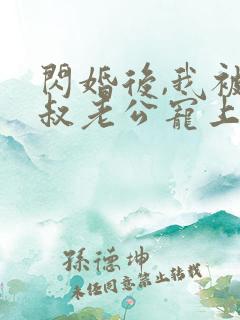 閃婚後,我被
叔老公寵上
孫德坤
未经同意禁止转载